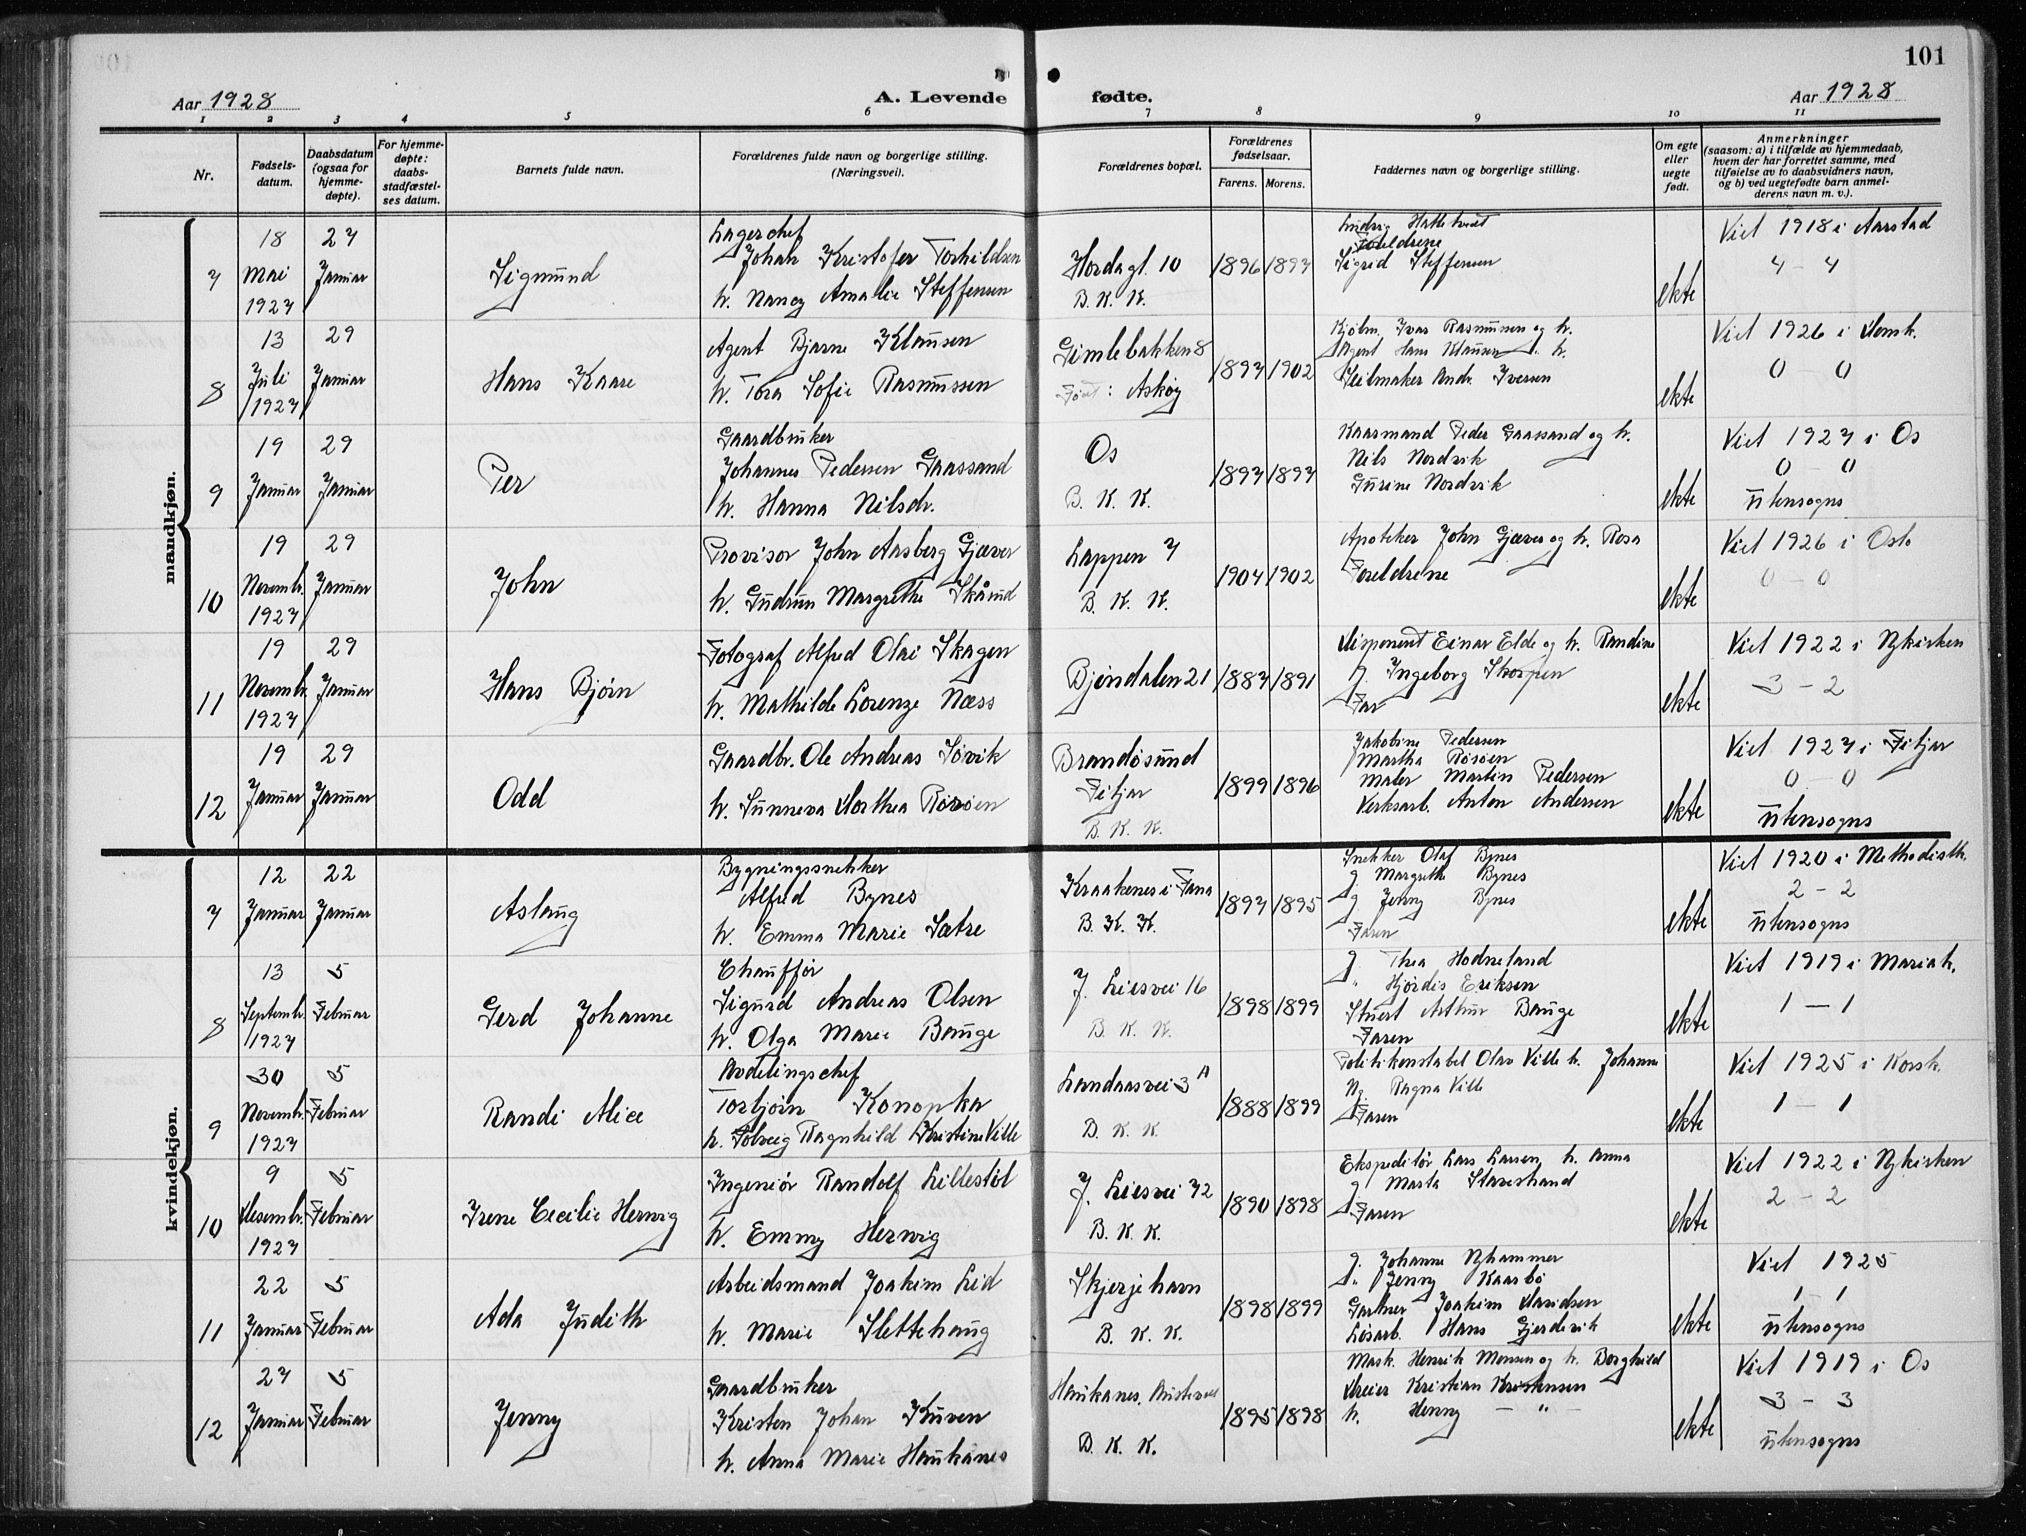 101
Aar 1928
A. Levende
fødte.
Aar 1928
1 2 3 4 5 6 7 8 9 10 11
Nr.
Fødsels-
datum.
Daabsdatum
(ogsaa for
hjemme-
døpte).
For hjemme-
døpte:
daabs-
stadfæstel-
ses datum.
Barnets fulde navn.
Forældrenes fulde navn og borgerlige stilling.
(Næringsvei).
Forældrenes bopæl.
Forældrenes
fødselsaar.
Farens. Morens.
Faddernes navn og borgerlige stilling.
Om egte
eller
uegte
født.
Anmerkninger
(saasom: a) i tilfælde av hjemmedaab,
hvem der har forrettet samme, med
tilføielse av to daabsvidners navn,
og b) ved uegtefødte barn anmel-
derens navn m. v.).
mandkjøn.
7
18
Mai
1927
27
Januar
Sigmund
Lagerchef
Johan Kristofer Torkildsen
h. Nancy Amalie Steffensen
Hordagt. 10
B. K. K.
1896 1897
Ludvig Hattehvedt
Foreldrene
Sigrid Steffensen
ekte
Viet 1918 i Aarstad
4 - 4
8
13
Juli
1927
29
Januar
Hans Kaare
Agent Bjarne Klausen
h. Tora Sofie Rasmussen
Gimlebakken 8
Født: Askøy
1897 1902
Kjøbm. Ivar Rasmussen og h.
Agent Hans Klausen " h.
Seilmaker Andr. Iversen
ekte
Viet 1926 i Domk.
0 - 0
9
19
Januar
29
Januar
Per
Gaardbruker
Johannes Pedersen Gaassand
h. Hanna Nilsdr.
Os
B. K. K.
1897 1897
Kaarmand Peder Gaassand og h.
Nils Nordvik
Gurine Nordvik
ekte
Viet 1927 i Os
0 - 0
utensogns
10
19
Novembr.
1927
29
Januar
John
Provisor John Aasberg Gjæver
h. Gudrun Margrethe Skåud
Lappen 7
B. K. K.
1904 1902
Apoteker John Gjæver og h. Rosa
Foreldrene
ekte
Viet 1926 i Oslo
0 - 0
11
19
Novembr.
1927
29
Januar
Hans Bjørn
Fotograf Alfred Olai Skagen
h. Mathilde Lorenze Næss
Bjøndalen 21
1887 1891
Disponent Einar Elde og h. Randine
g. Ingeborg Skorpen
Far
ekte
Viet 1922 i Nykirken
3 - 2
12
19
Januar
29
Januar
Odd
Gaardbr. Ole Andreas Søvik
h. Sunneva Dorthea Rørøen
Brandøsund
Fitjar
B. K. K.
1899 1896
Jakobine Pedersen
Martha Rørøen
Maler Martin Pedersen
Verksarb. Anton Andersen
ekte
Viet 1927 i Fitjar
0 - 0
utensogns
kvindekjøn.
7
12
Januar
22
Januar
Aslaug
Bygningssnekker
Alfred Bynes
h. Emma Marie Sætre
Kraakenes i Fana
B. K. K.
1897 1895
Snekker Olaf Bynes
g. Margrethe Bynes
g. Jenny Bynes
Faren
ekte
Viet 1920 i Methodistk.
2 - 2
utensogns
8
13
Septembr.
1927
5
Februar
Gerd Johanne
Chauffør
Sigurd Andreas Olsen
h. Olga Marie Bauge
J. Liesvei 16
B. K. K.
1898 1899
g. Thea Hodneland
" Hjørdis Eriksen
Stuert Arthur Bauge
Faren
ekte
Viet 1919 i Mariak.
1 - 1
9
30
Novembr.
1927
5
Februar
Randi Alice
Avdelingschef
Torbjørn Konopka
h. Solveig Ragnhild Kristine Ville
Landaasvei 3 A
B. K. K.
1888 1899
Politikonstabel Olav Ville h. Johanne
Ragna Ville
Faren
ekte
Viet 1925 i Korsk.
1 - 1
10
9
Desembr.
1927
5
Februar
Irene Cecilie Herwig
Ingeniør Randolf Lillestøl
h. Emmy Herwig
J. Liesvei 72
B. K. K.
1890 1898
Ekspeditør Lars Larsen, h. Anna
g. Marta Slaastrand
Faren
ekte
Viet 1922 i Nykirken
2 - 2
11
22
Januar
5
Februar
Ada Judith
Arbeidsmand Joakim Lid
h. Marie Slettehaug
Skjerjehavn
B. K. K.
1898 1899
g. Johanne Nyhammer
" Jenny Kaarbø
Gartner Joakim Davidsen
Løsarb. Hans Gjerdevik
ekte
Viet 1925
1 1
utensogns
12
27
Januar
5
Februar
Jenny
Gaardbruker
Kristen Johan Kuven
h. Anna Marie Haukanes
Haukanes, Austevoll
B. K. K.
1895 1898
Mask. Henrik Monsen og h. Borghild
Dreier Kristian Kristensen
h. Henny - " -
ekte
Viet 1919 i Os
3 - 3
utensogns